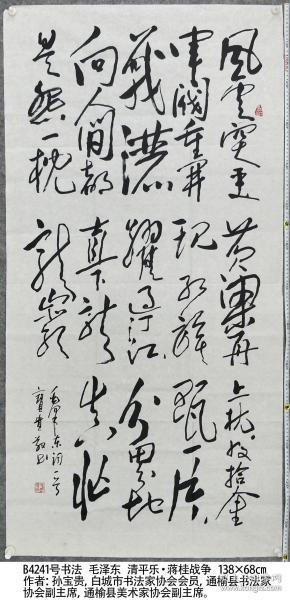 风云突变
军阀重开
战洒
向人间都
是怨一枕
黄粱再
现红旗
躍过汀江
直下
龙岩
上杭收拾金
瓯一片
分田分地
真忙
毛泽东词一首
宝贵敬书
B4241号书法 毛泽东 清平乐·蒋桂战争 138×68cm
作者:孙宝贵,白城市书法家协会会员,通榆县书法家
协会副主席,通榆县美术家协会副主席。